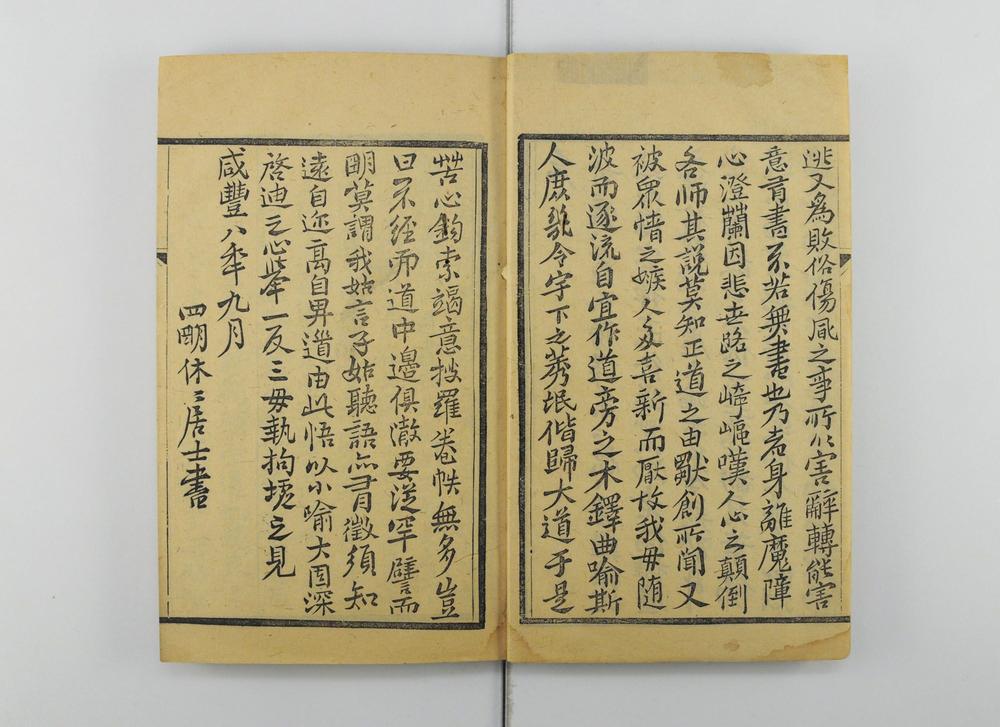 逃又為敗俗傷風之事所以害辭轉能害
意有書不若無書也乃者身離魔障
心澄蘭因悲世路之崎嶇嘆人心之顛倒
各師其說莫知正道之由獨創所聞又
被眾憎之嫉人多喜新而厭故我毋隨
波而逐流自宜作道旁之木鐸曲喻斯
人庶幾令宇下之莠氓偕歸大道于是
苦心鈎索竭意搜羅卷帙無多豈
曰不經而道中邊俱澈要從罕譬而
明莫謂我姑言子姑聽語亦有徵須知
遠自迩高自卑道由此悟以小喻大因深
啓迪之心舉一反三毋執拘墟之見
咸豐八年九月
四明休〻居士書